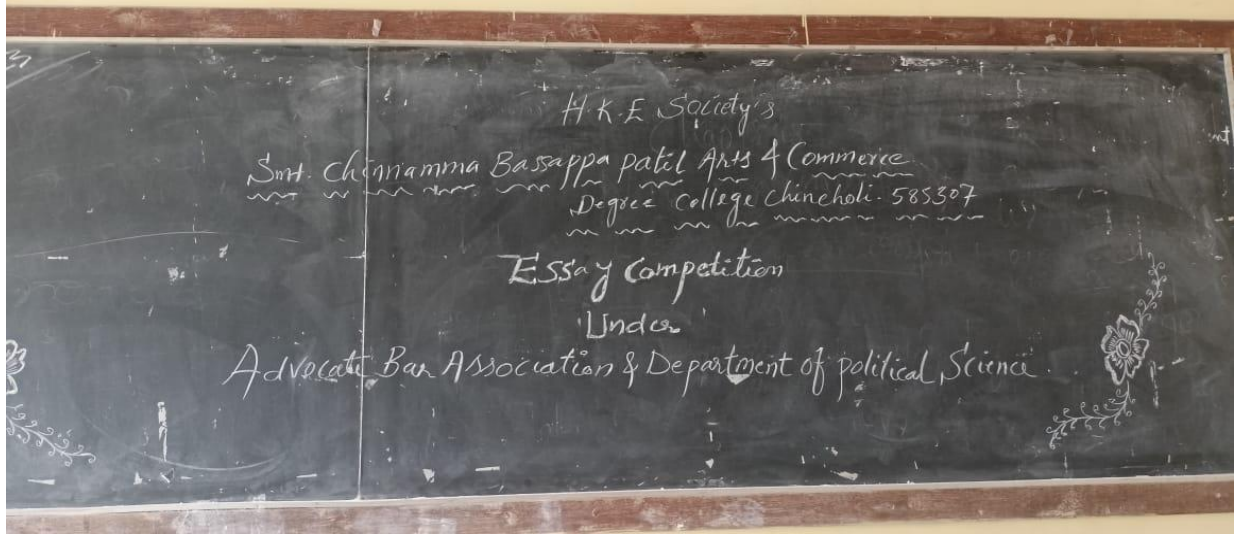 H.K.E Society's
Smt. Chinnamma Bassappa patil Arts & Commerce
Degree College Chincholi. 585307
Essay Competition
Under
Advocate Bar Association & Department of political Science.